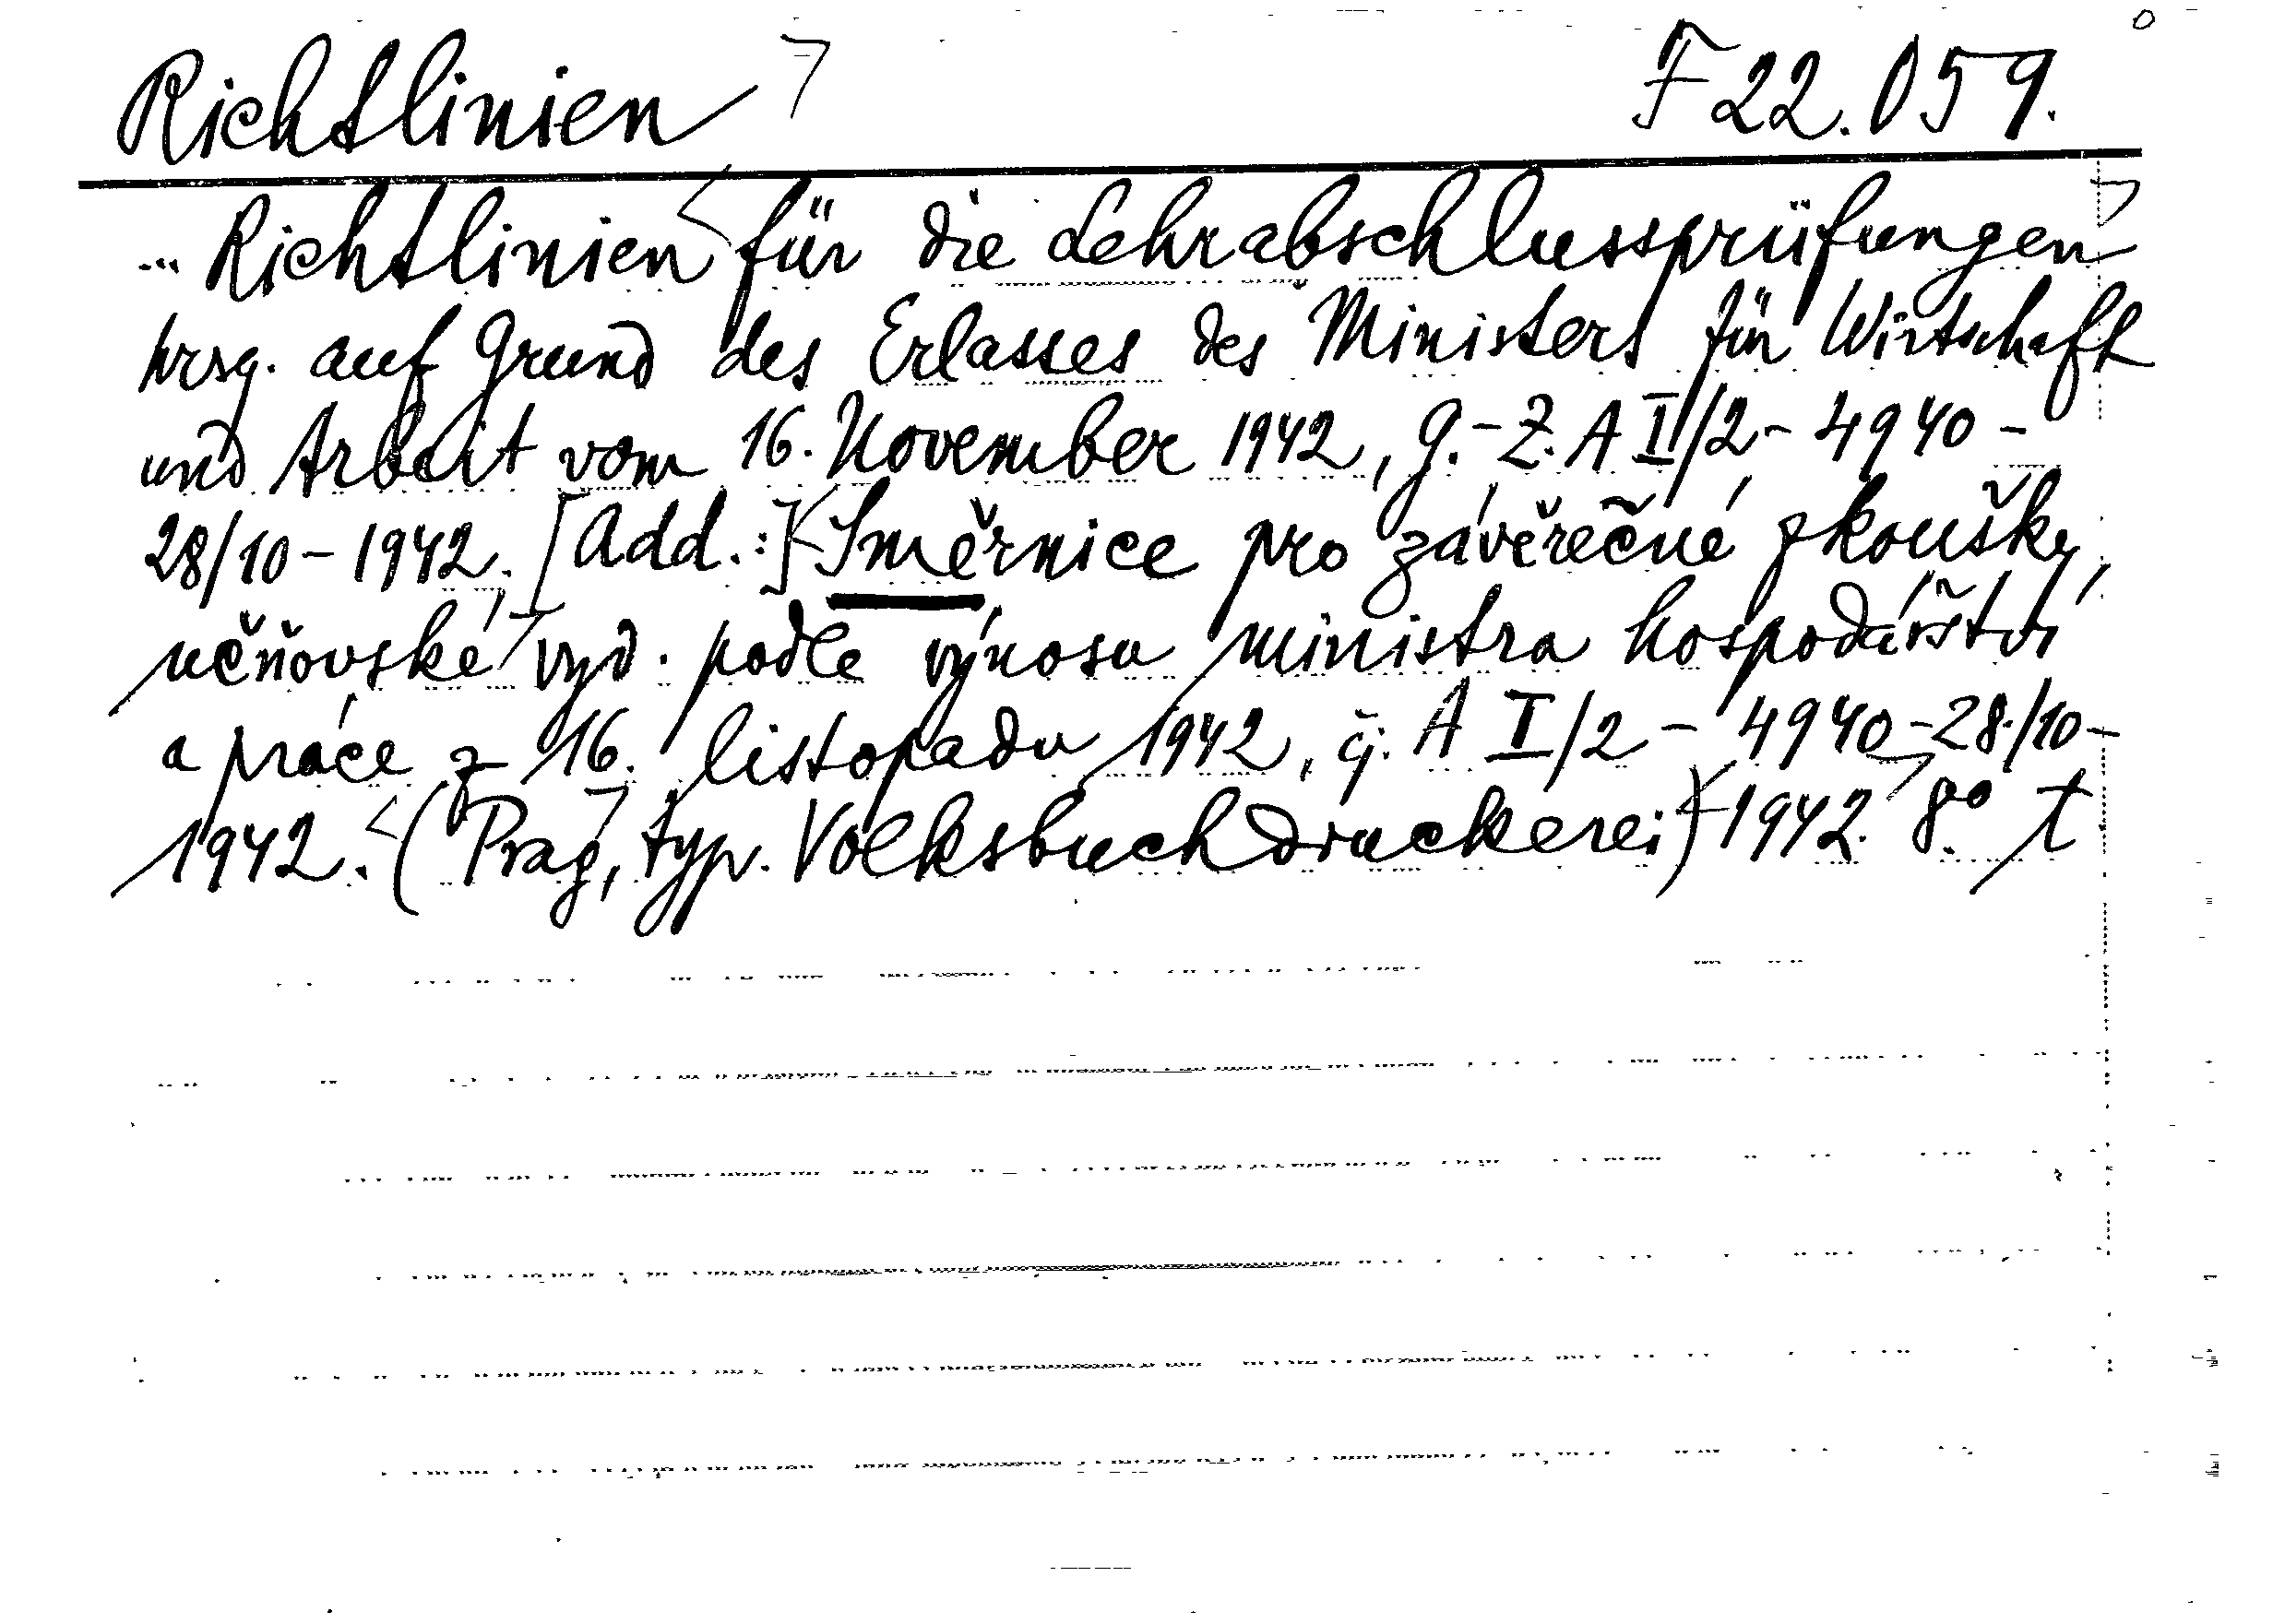 Richtlinien F 22.059.
... Richtlinien für die Lehrabschlussprüfungen
hrsg. auf Grund des Erlasses des Ministers für Wirtschaft
und Arbeit vom 16. November 1942, G.-Z. A I/2 - 4940 -
28/10 - 1942. [Add.:] Směrnice pro závěrečné zkoušky
učňovské vyd. podle výnosu ministra hospodářství
a práce z 16. listopadu 1942, čj. A I/2 - 4940 - 28./10 -
1942. (Prag, typ. Volksbuchdruckerei) 1942. 8° t